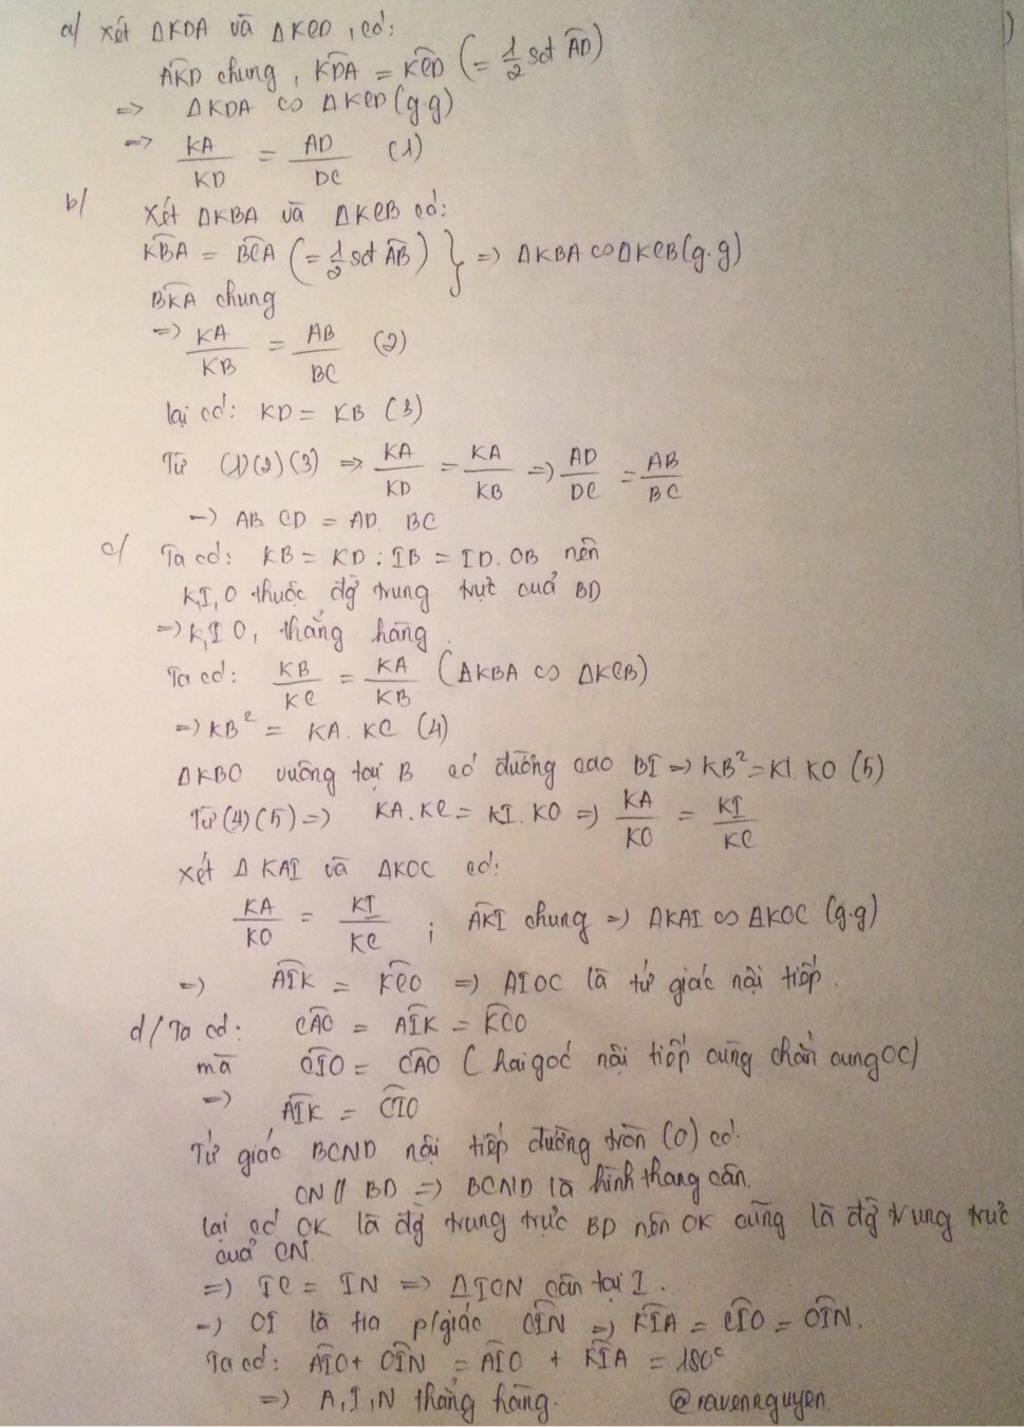 a/ Xét ΔKDA và ΔKCD, có:
AKD chung, KDA = KCD (= 1/2 sđ AD)
=> ΔKDA ∽ ΔKCD (g.g)
=> KA/KD = AD/DC (1)
b/ Xét ΔKBA và ΔKCB có:
KBA = BCA (= 1/2 sđ AB) } => ΔKBA ∽ ΔKCB (g.g)
BKA chung
=> KA/KB = AB/BC (2)
lại có: KD = KB (3)
Từ (1)(2)(3) => KA/KD = KA/KB => AD/DC = AB/BC
-> AB. CD = AD. BC
c/ Ta có: KB = KD : IB = ID. OB nên
K,I,O thuộc đg trung trực của BD
=> K,I O, thẳng hàng.
Ta có: KB/KC = KA/KB (ΔKBA ∽ ΔKCB)
=> KB² = KA. KC (4)
ΔKBO vuông tại B có đường cao BI => KB² = KI. KO (5)
Từ (4)(5) => KA.KC = KI.KO => KA/KO = KI/KC
Xét Δ KAI và ΔKOC có:
KA/KO = KI/KC ; AKI chung => ΔKAI ∽ ΔKOC (g.g)
=> AIK = KCO => AIOC là tứ giác nội tiếp.
d/ Ta có: CAO = AIK = KCO
mà CIO = CAO (hai góc nội tiếp cùng chắn cung OC)
=> AIK = CIO
Tứ giác BCND nội tiếp đường tròn (O) có:
CN // BD => BCND là hình thang cân.
lại có OK là đg trung trực BD nên OK cũng là đg trung trực
của CN.
=> IC = IN => ΔICN cân tại I.
-> OI là tia p/giác CIN => KIA = CIO = OIN.
Ta có: AIO + OIN = AIO + KIA = 180°
=> A, I, N thẳng hàng. @ravennguyen.